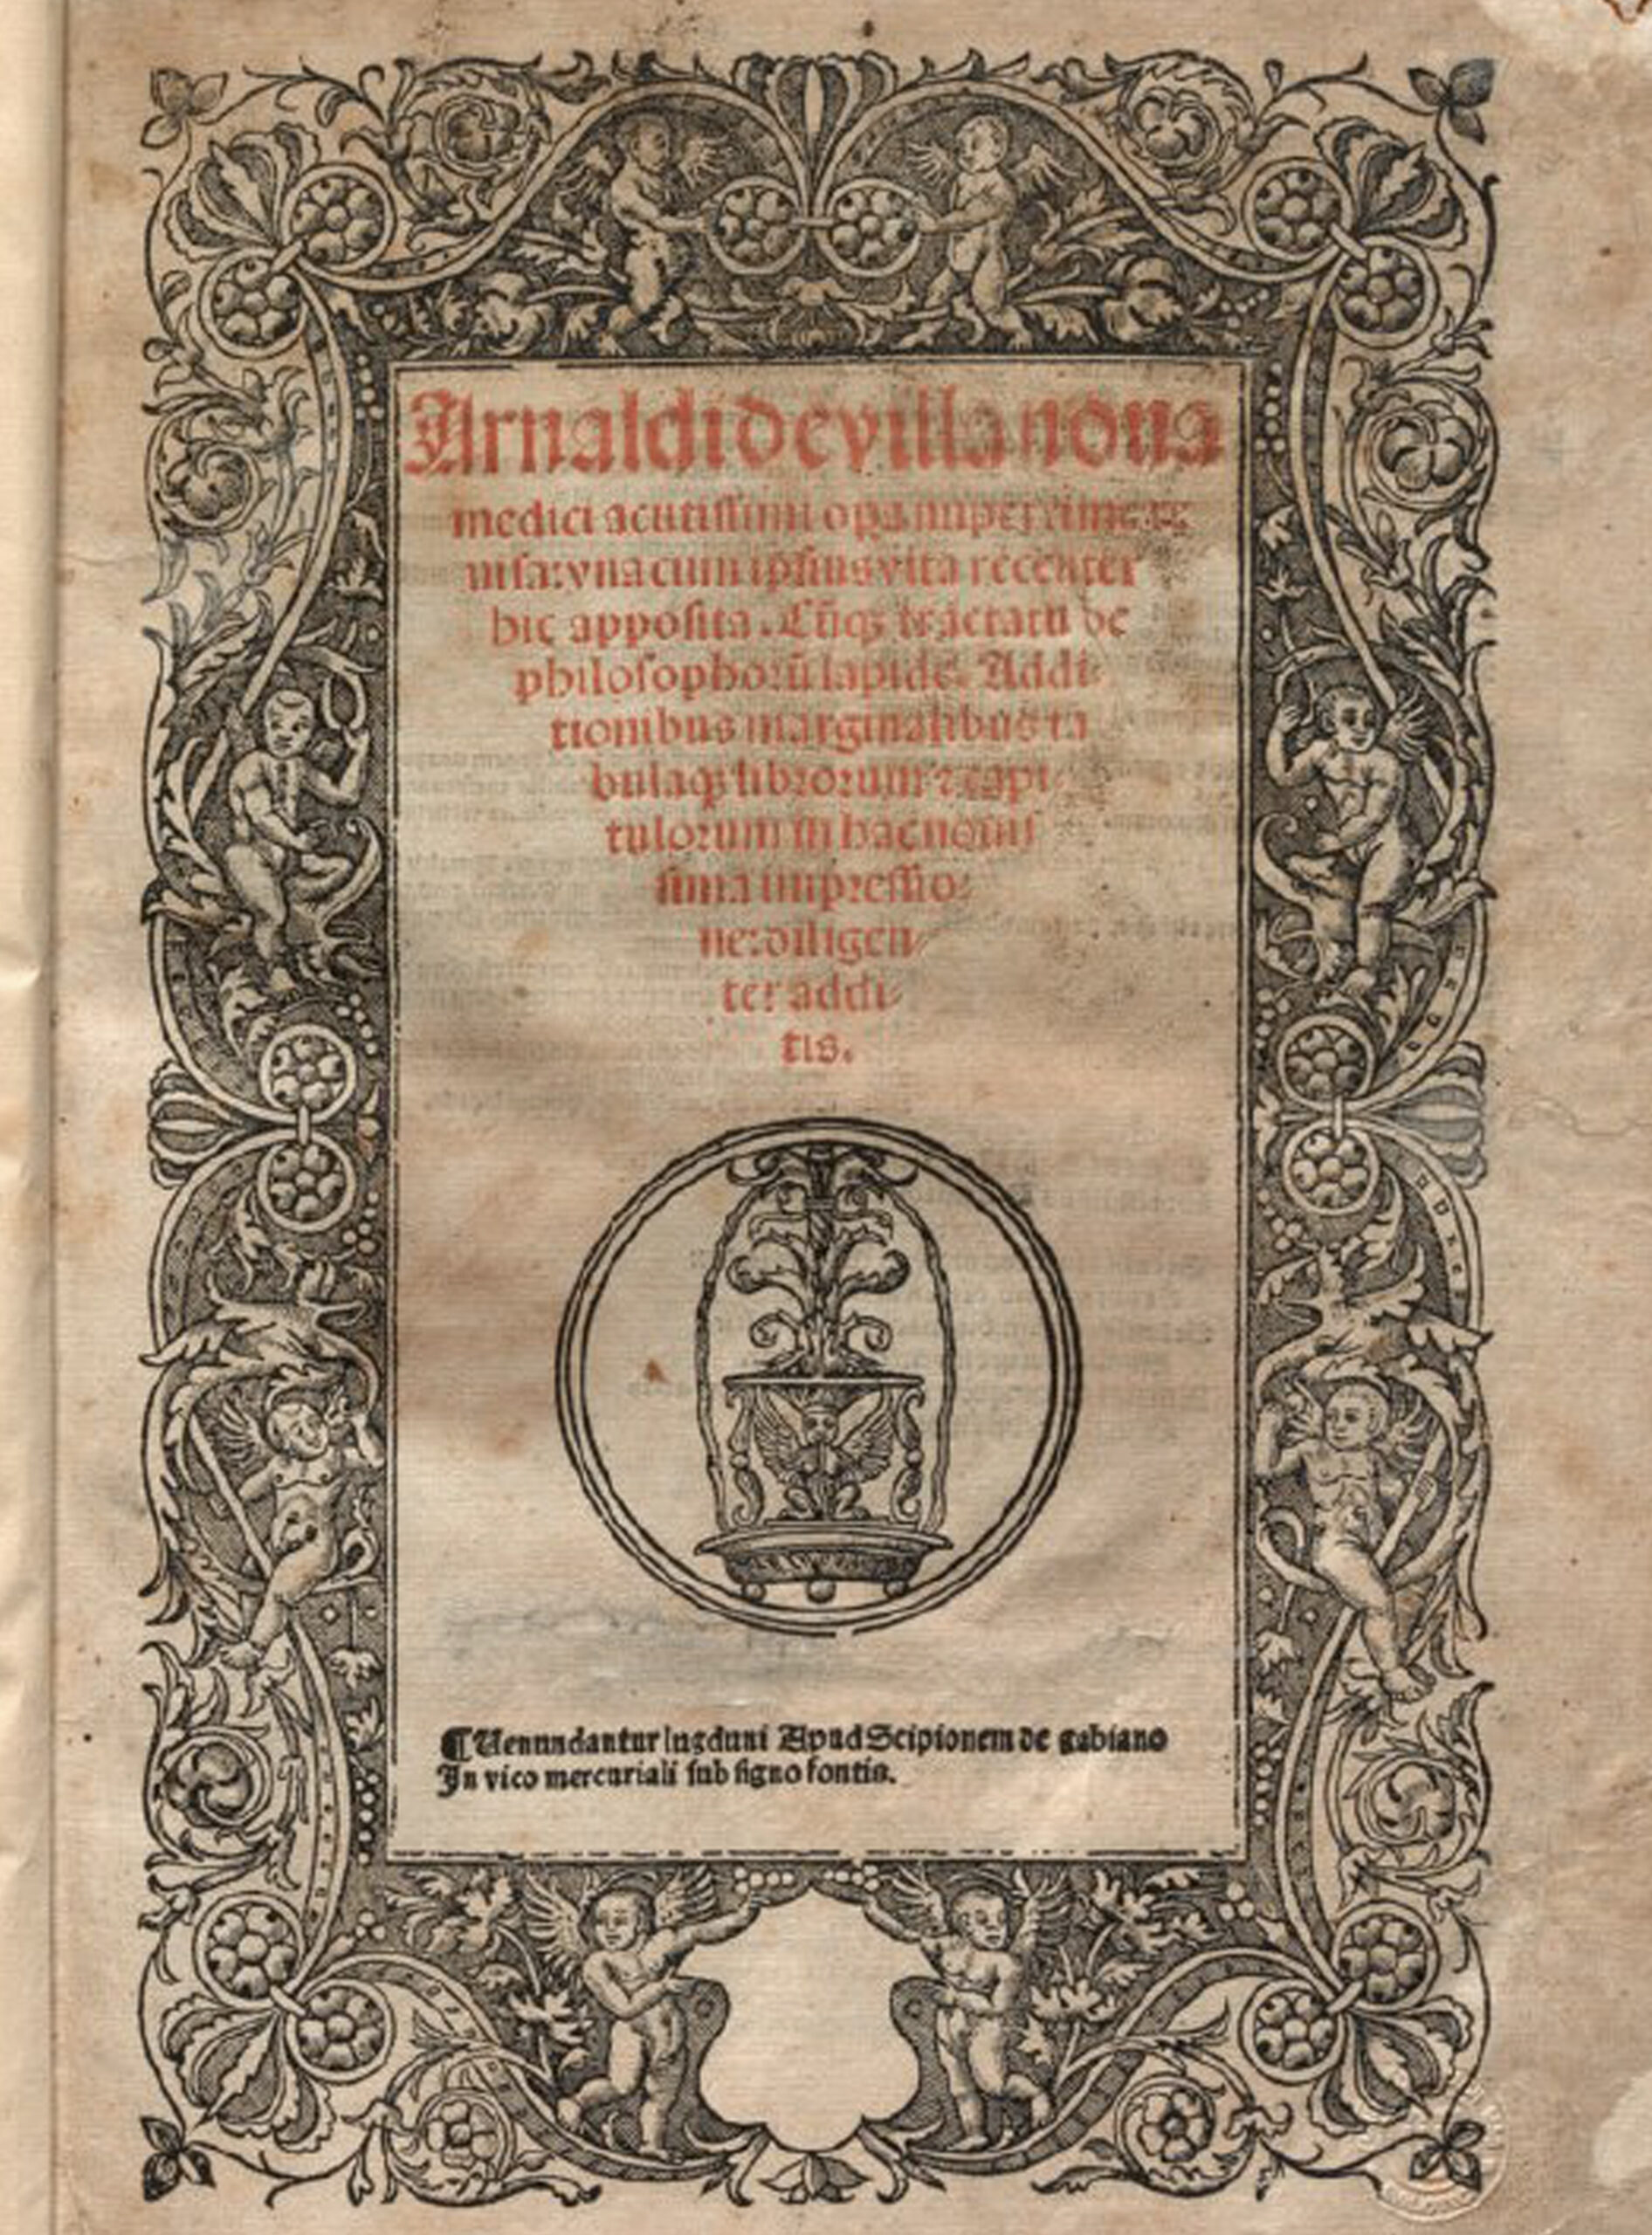 Arnaldi de villa noua
medici acutissimi opa nuperrime re
uisa: vna cum ipsius vita recenter
hic apposita. Cūqꝫ tractatu de
philosophoꝝū lapide. Addi-
tionibus marginalibus ta
bulaqꝫ librorum ⁊ capi-
tulorum in hac nouis
sima impressio-
ne: diligen-
ter addi-
tis.
¶ Uenundantur lugduni Apud Scipionem de gabiano
In vico mercuriali sub signo fontis.